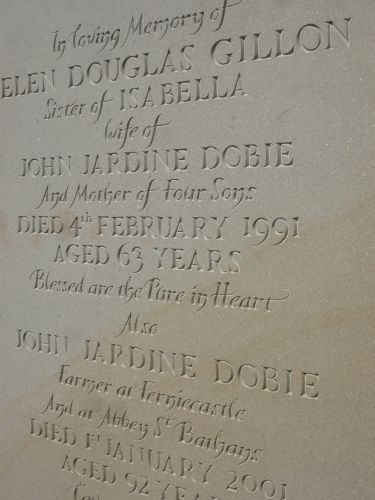 In loving Memory of
ELEN DOUGLAS GILLON
Sister of ISABELLA
Wife of
JOHN JARDINE DOBIE
And Mother of Four Sons
DIED 4th FEBRUARY 1991
AGED 63 YEARS
Blessed are the Pure in Heart
Also
JOHN JARDINE DOBIE
Farmer at Ferniecastle
And at Abbey St Bathans
DIED 1st JANUARY 2001
AGED 92 YEAR